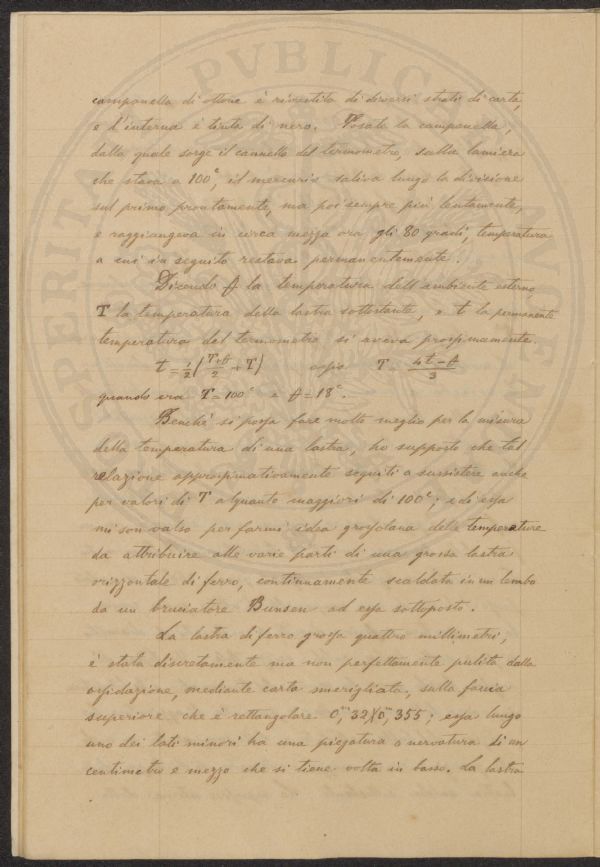 campanella di ottone è rivestita di diversi strati di carta,
e l'interna è tinta di nero. Posata la campanella,
dalla quale sorge il cannello del termometro, sulla lamiera
che stava a 100°, il mercurio saliva lungo la divisione
sul primo prontamente, ma poi sempre più lentamente,
e raggiungeva in circa mezza ora gli 80 gradi, temperatura
a cui in seguito restava permanentemente.
Dicendo θ la temperatura dell'ambiente esterno
T la temperatura della lastra sottostante, e t la permanente
temperatura del termometro si aveva prossimamente.
t = 1/2 ( (T+θ)/2 + T ) ossia T = (4t - θ)/3
quando era T = 100° e θ = 18°.
Benchè si possa fare molto meglio per la misura
della temperatura di una lastra, ho supposto che tal
relazione approssimativamente seguiti a sussistere anche
per valori di T alquanto maggiori di 100°; e di essa
mi son valso per farmi idea grossolana delle temperature
da attribuire alle varie parti di una grossa lastra
orizzontale di ferro, continuamente scaldata in un lembo
da un bruciatore Bunsen ad essa sottoposto.
La lastra di ferro grossa quattro millimetri,
è stata discretamente ma non perfettamente pulita dalla
ossidazione, mediante carta smerigliata, sulla faccia
superiore che è rettangolare 0,m32 X 0,m355; essa lungo
uno dei lati minori ha una piegatura o nervatura di un
centimetro e mezzo che si tiene volta in basso. La lastra